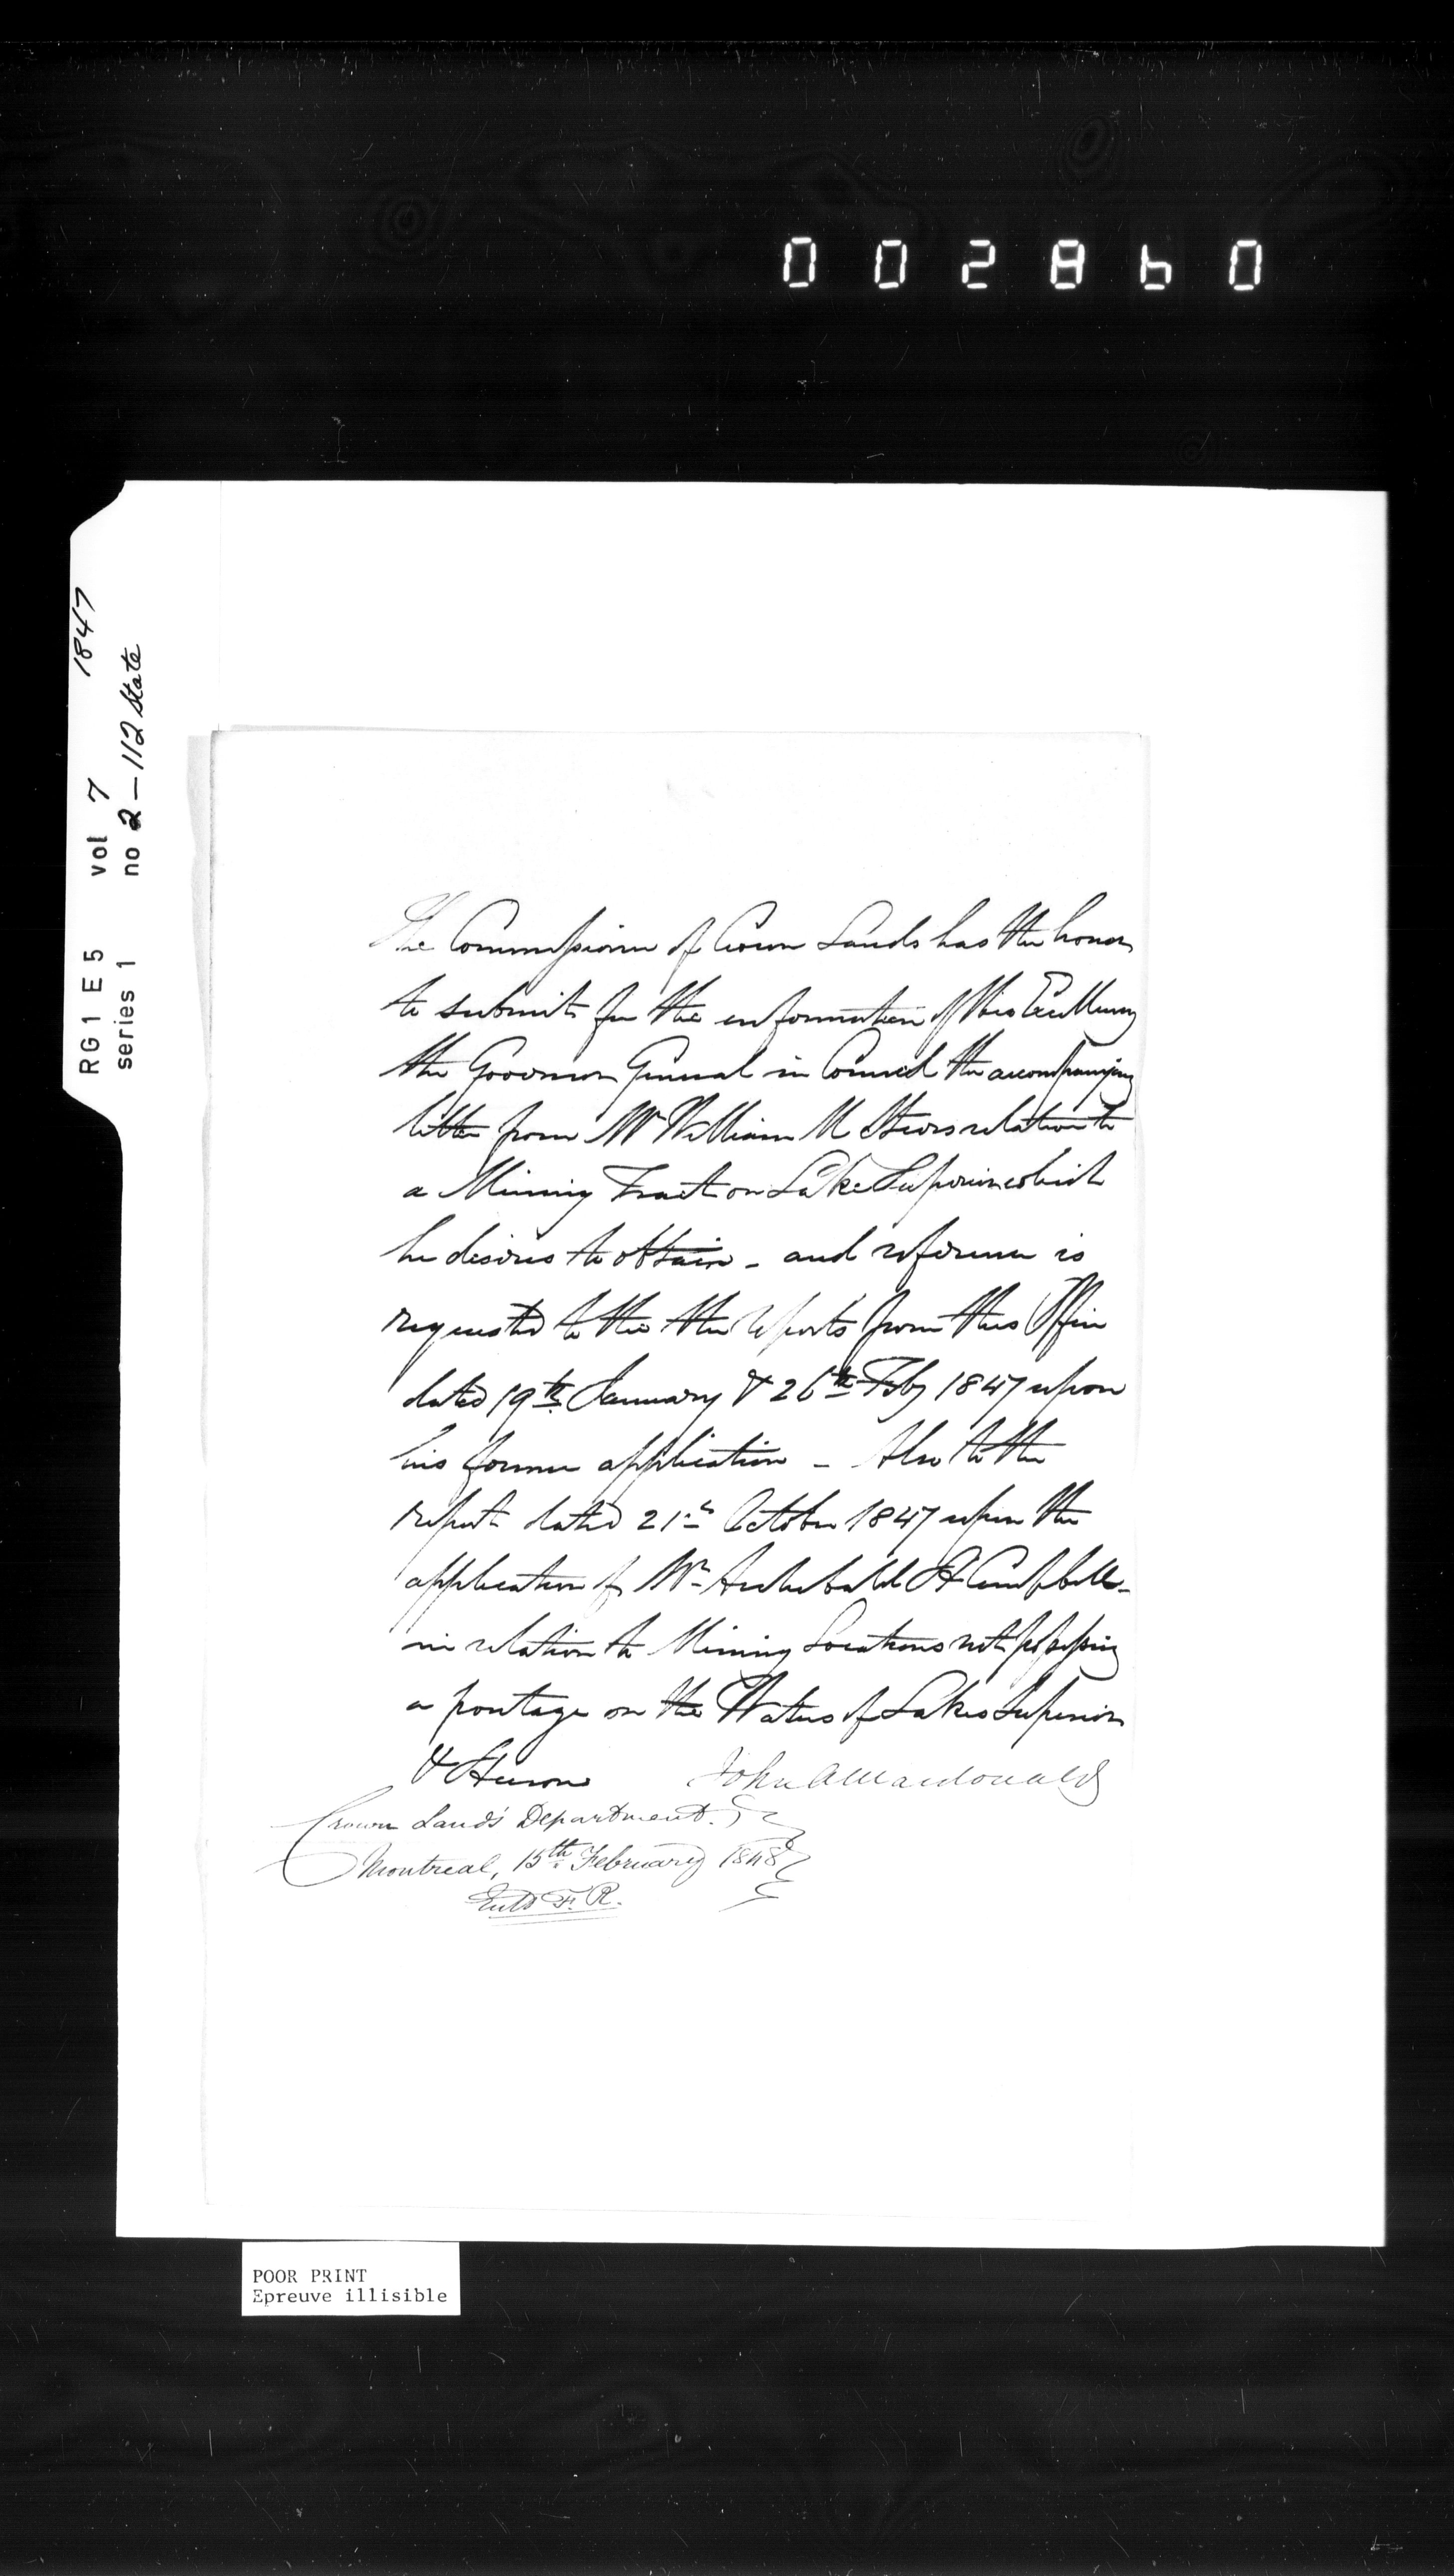 002860
RG1 E5 vol 7 1847
series 1 no 2-112 State
The Commissioner of Crown Lands has the honor
to submit for the information of His Excellency
the Governor General in Council the accompanying
letter from Mr William M relation to
a Mining Tract on Lake Superior which
he desires to obtain - and reference is
requested to the the reports from this Office
dated 19th January & 26th Feby 1847 upon
his former application - Also to the
report dated 21st October 1847 upon the
application of Mr Archibald H Campbell -
in relation to Mining Locations not possessing
a frontage on the Waters of Lakes Superior
& Huron John A Macdonald
Crown Lands Department.
Montreal, 15th February 1848
Entd F. R.
POOR PRINT
Epreuve illisible